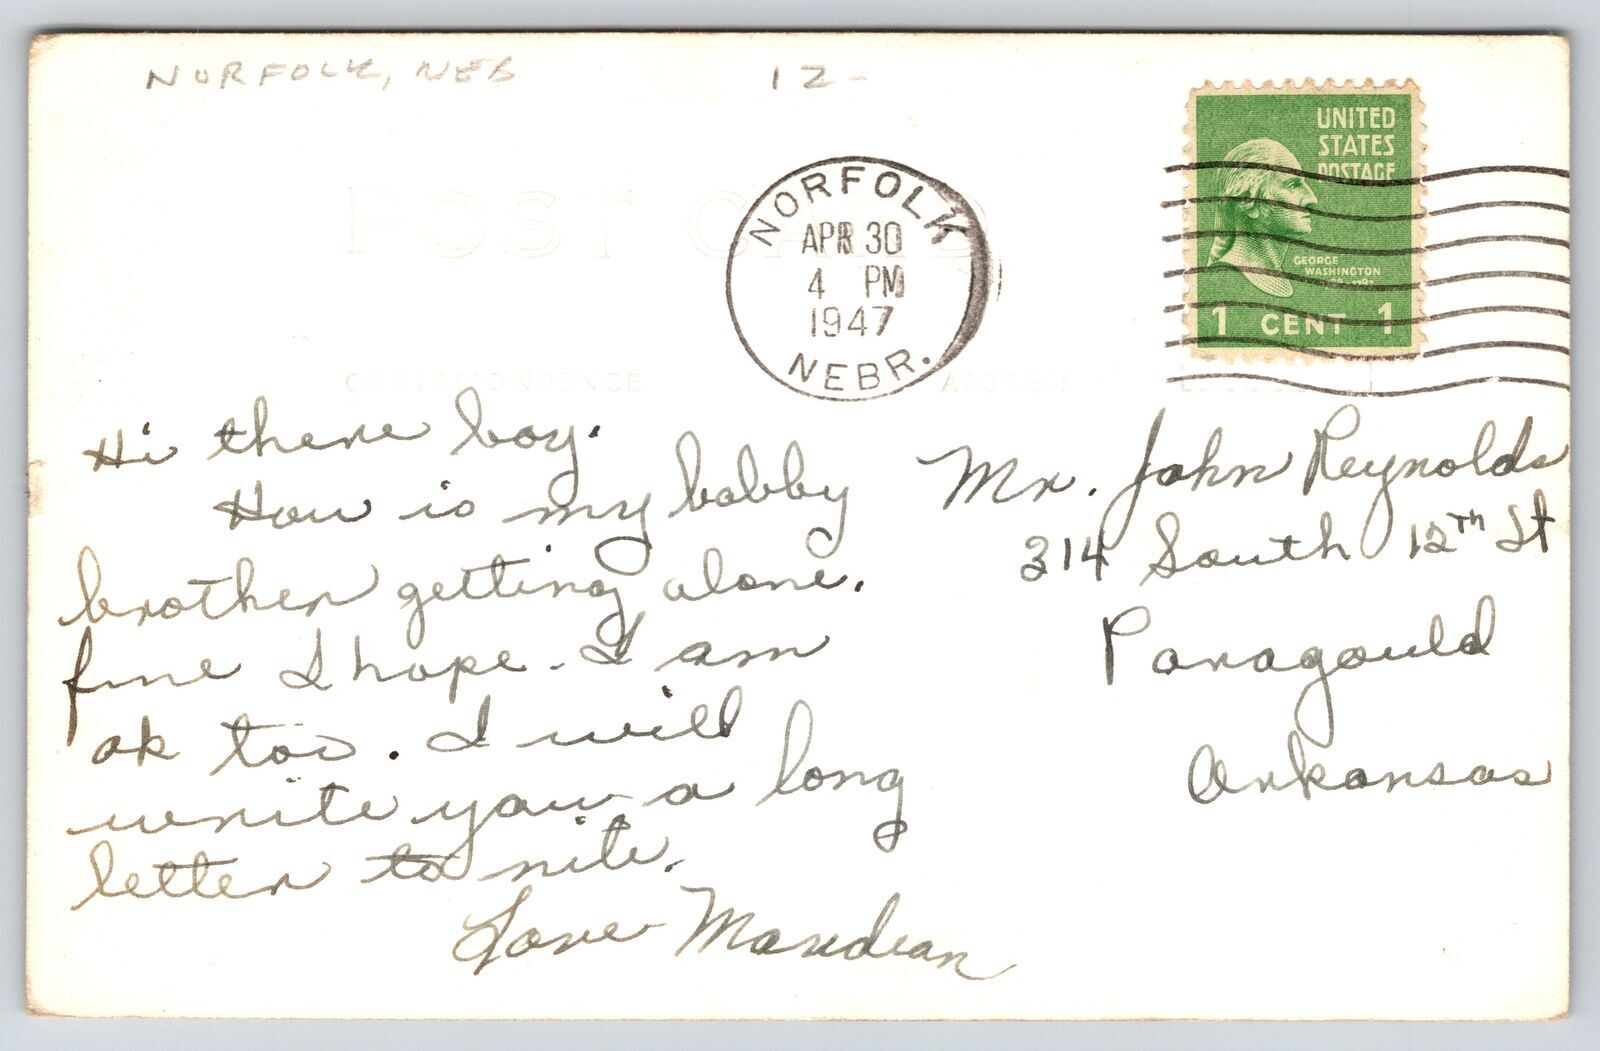 NORFOLK, NEB 12-
POST CARD
UNITED
STATES
POSTAGE
GEORGE
WASHINGTON
1 CENT 1
NORFOLK
APR 30
4 PM
1947
NEBR.
CORRESPONDENCE
ADDRESS
Hi there boy.
How is my babby
brother getting alone.
fine I hope. I am
ok too. I will
write you a long
letter to nite.
Love
Mr. John Reynolds
314 South 12th St
Paragould
Arkansas